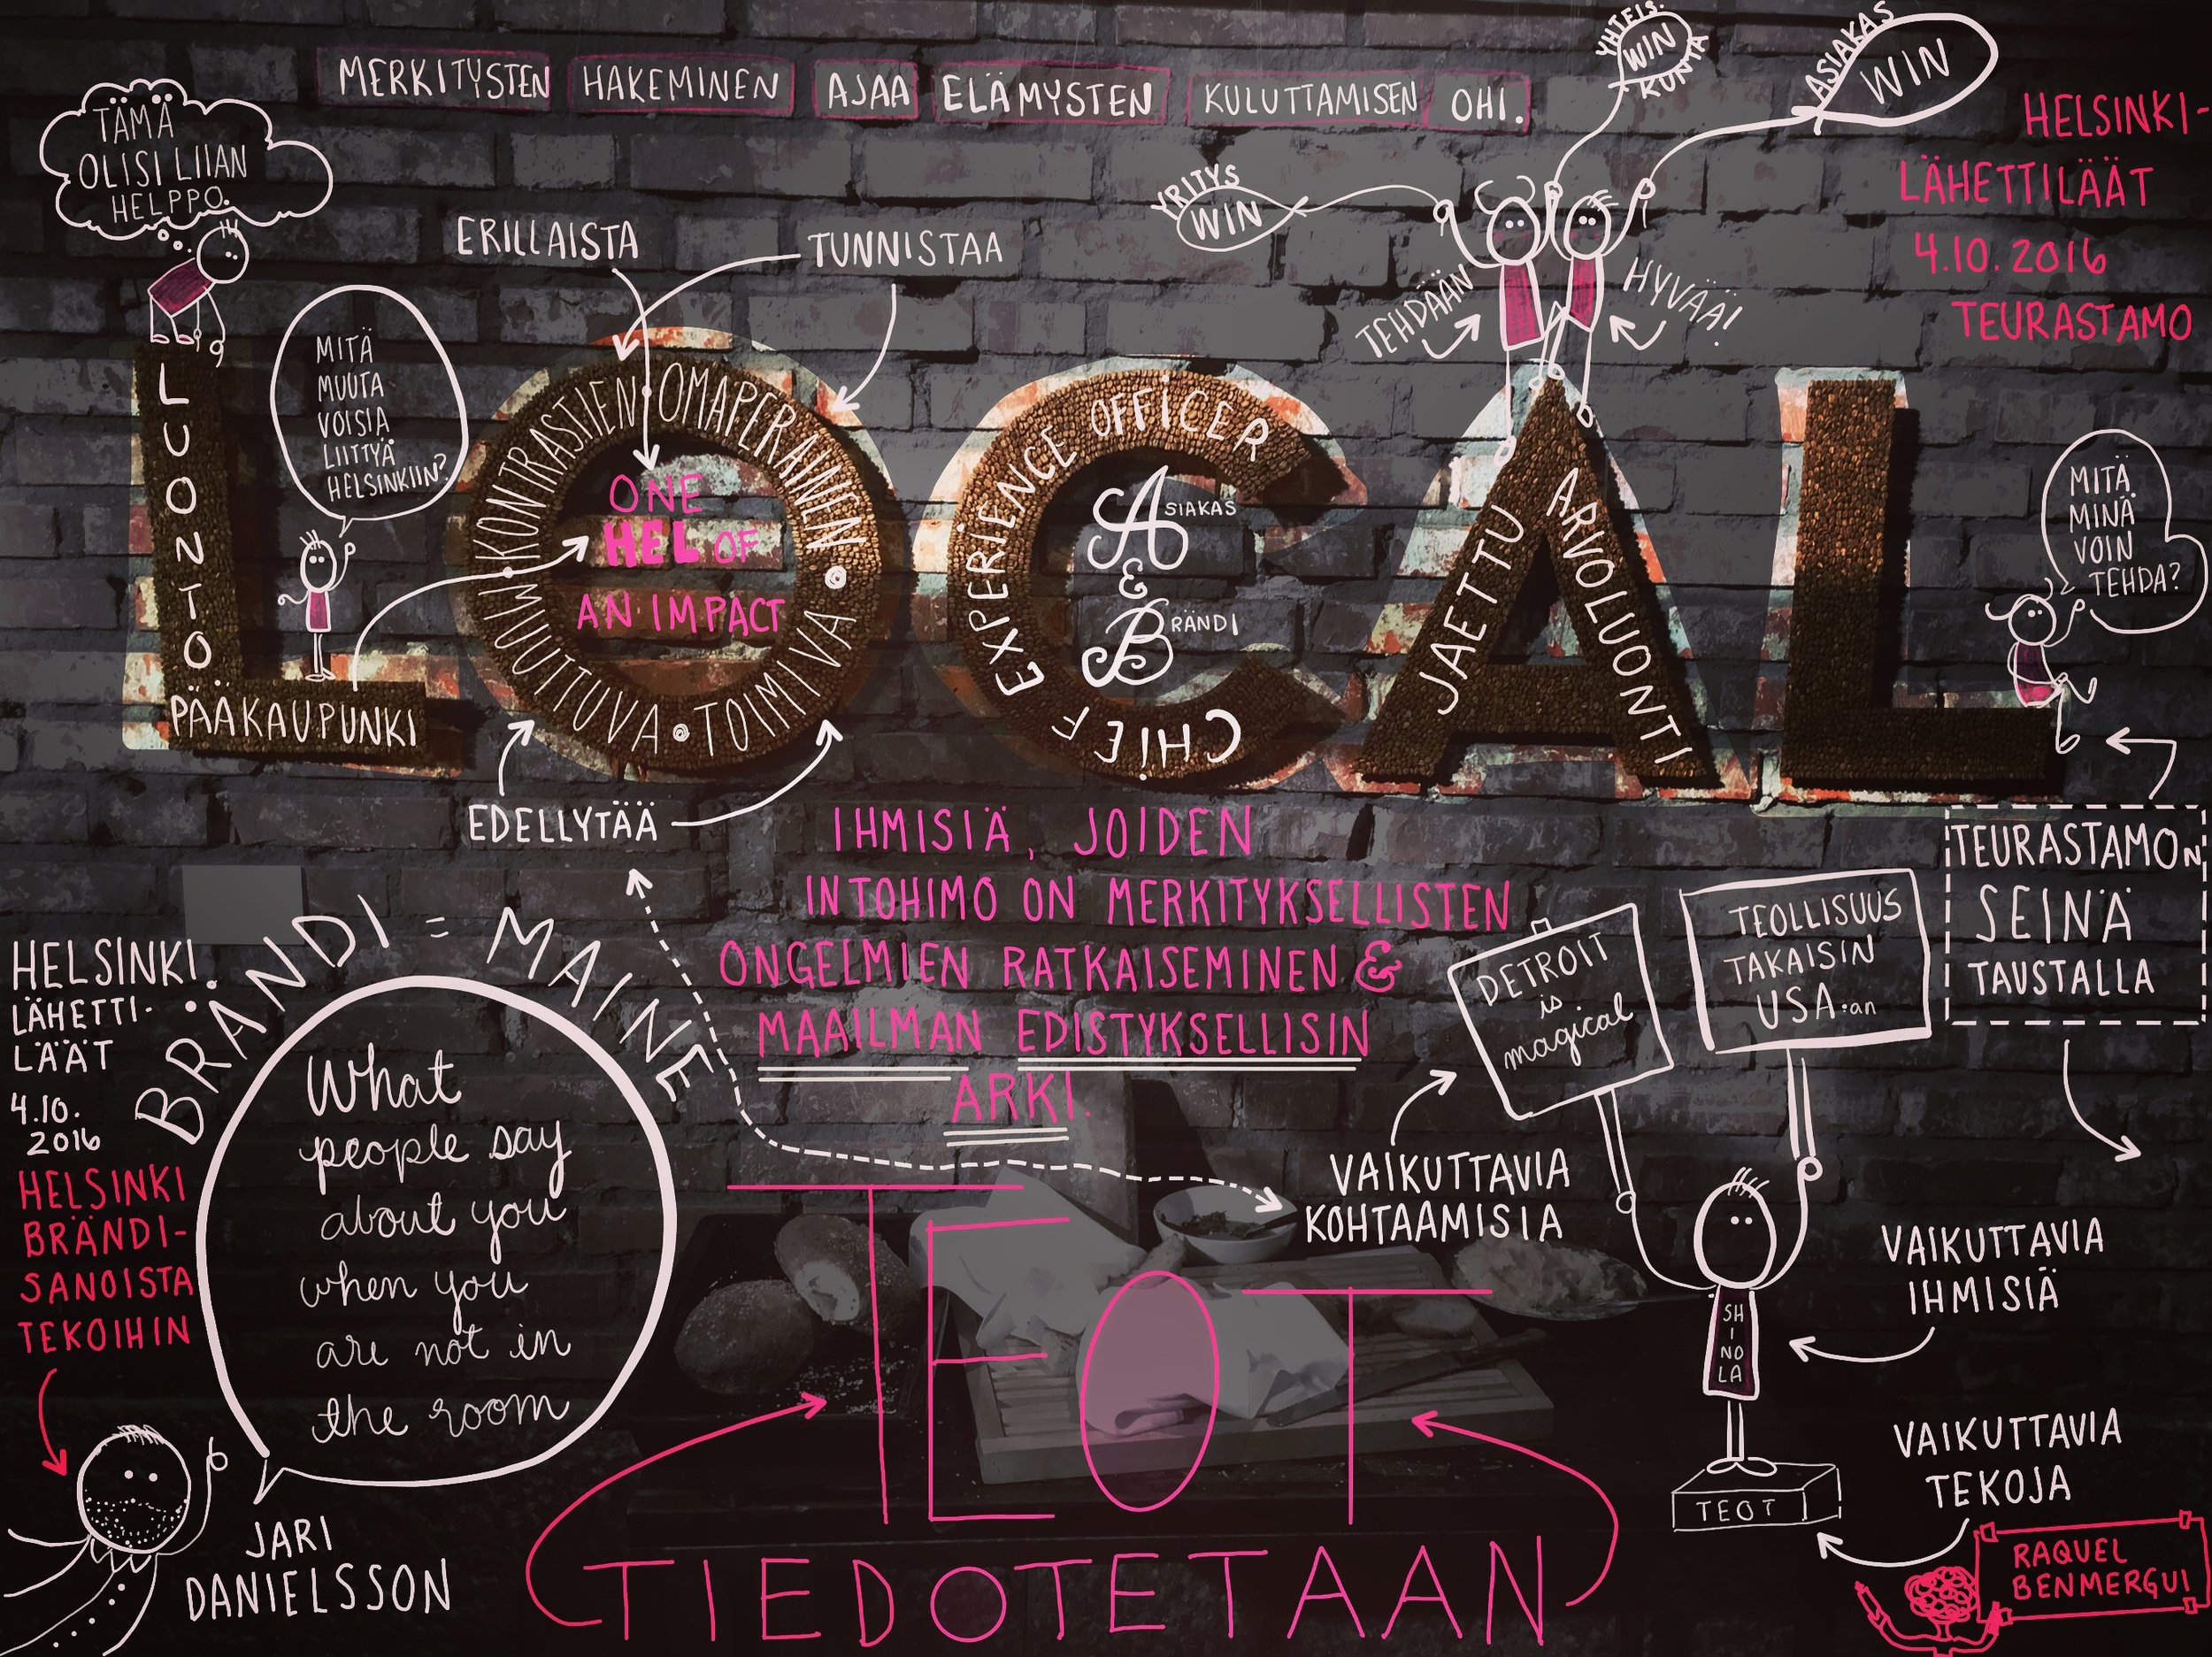 MERKITYSTEN HAKEMINEN AJAA ELÄMYSTEN KULUTTAMISEN OHI.
YHTEIS-
WIN
KUNTA
ASIAKAS
WIN
YRITYS
WIN
HELSINKI-
LÄHETTILÄÄT
4.10.2016
TEURASTAMO
TÄMÄ
OLISI LIIAN
HELPPO.
ERILLAISTA
TUNNISTAA
TEHDÄÄN
HYVÄÄ!
MITÄ
MUUTA
VOISIA
LIITTYÄ
HELSINKIIN?
LOCAL
LUONTO
PÄÄKAUPUNKI
KONTRASTIEN
OMAPERÄINEN
TOIMIVA
MUUTTUVA
ONE
HEL OF
AN IMPACT
CHIEF EXPERIENCE OFFICER
ASIAKAS
&
BRÄNDI
JAETTU
ARVOLUONTI
MITÄ
MINÄ
VOIN
TEHDA?
EDELLYTÄÄ
IHMISIÄ, JOIDEN
INTOHIMO ON MERKITYKSELLISTEN
ONGELMIEN RATKAISEMINEN &
MAAILMAN EDISTYKSELLISIN
ARKI.
TEURASTAMON
SEINÄ
TAUSTALLA
DETROIT
is
magical
TEOLLISUUS
TAKAISIN
USA:an
HELSINKI
LÄHETTI-
LÄÄT
4.10.
2016
HELSINKI
BRÄNDI-
SANOISTA
TEKOIHIN
BRÄNDI = MAINE
What
people say
about you
when you
are not in
the room
JARI
DANIELSSON
VAIKUTTAVIA
KOHTAAMISIA
SH
I
NO
LA
VAIKUTTAVIA
IHMISIÄ
TEOT
TIEDOTETAAN
TEOT
VAIKUTTAVIA
TEKOJA
RAQUEL
BENMERGUI